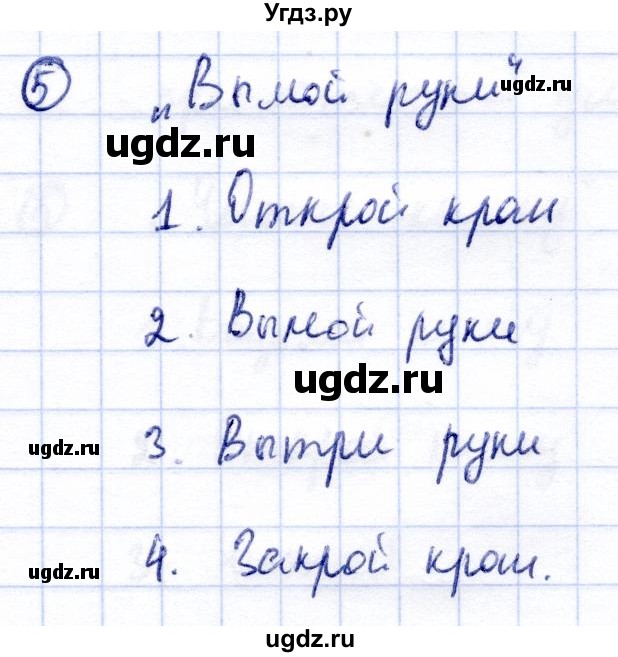 Угдз.ру
5 „Вымой руки“
ugdz.ru
ugdz.ru
1. Открой кран
2. Вымой руки
ugdz.ru
ugdz.ru
3. Вытри руки
ugdz.ru
4. Закрой кран.
ugdz.ru